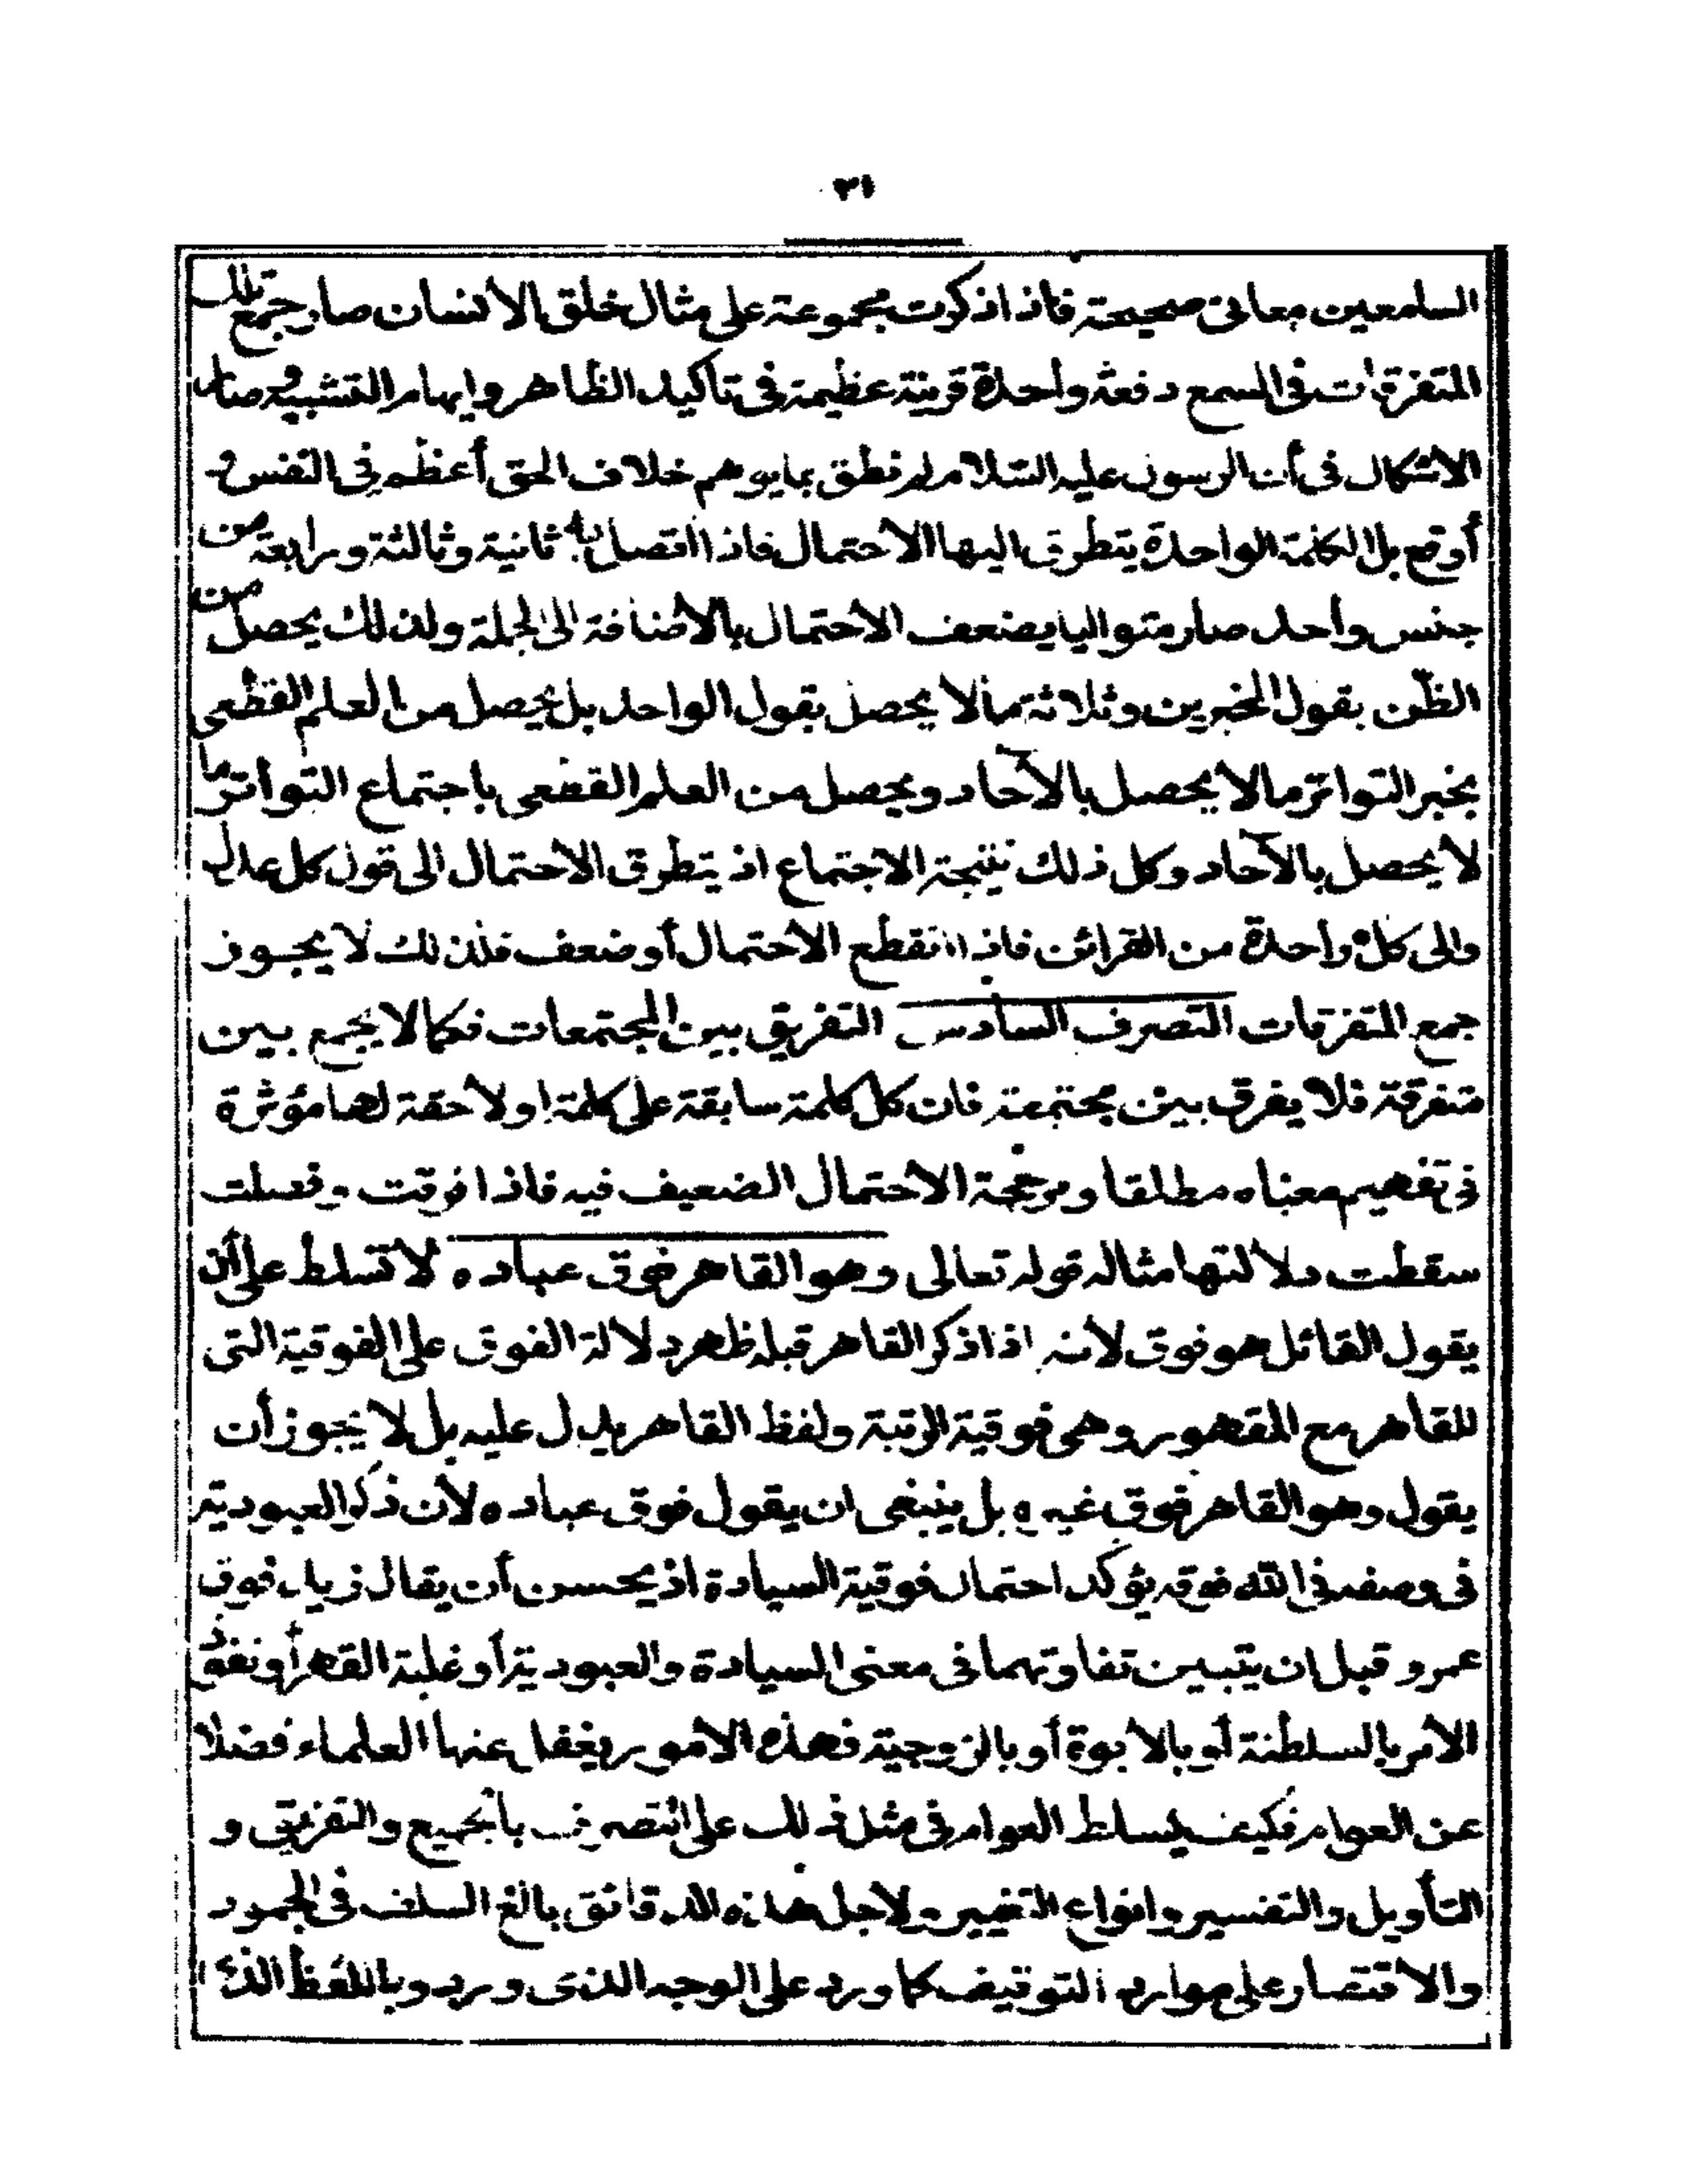 ٣١
السامعين معانى صحيحة فاذا ذكرت مجموعة على مثال خلق الانسان صار جمع تلك
المتفرقات فى السمع دفعة واحدة قرينة عظيمة فى تاكيد الظاهر وايهام التشبيه وصار
الاشكال فى أن الرسول عليه السلام لم نطق بما يوهم خلاف الحق أعظم فى النفس و
أوقع بل الكلمة الواحدة يتطرق اليها الاحتمال فاذا اتصل به ثانية وثالثة ورابعة من
جنس واحد صار متواليا يضعف الاحتمال بالاضافة الى الجملة ولذلك يحصل من
الظن بقول المخبرين وثلاثة مالا يحصل بقول الواحد بل يحصل من العلم القطعى
بخبر التواتر مالا يحصل بالآحاد ويحصل من العلم القطعى باجتماع التواتر ما
لا يحصل بالآحاد وكل ذلك نتيجة الاجتماع اذ يتطرق الاحتمال الى قول كل عدل
والى كل واحدة من القرائن فاذا انقطع الاحتمال أو ضعف فلذلك لا يجوز
جمع المتفرقات التصرف السادس التفريق بين المجتمعات فكما لا يجمع بين
متفرقة فلا يفرق بين مجتمعة فان كل كلمة سابقة على كلمة او لاحقة لها مؤثرة
فى تفهيم معناه مطلقا ومرجحة الاحتمال الضعيف فيه فاذا فرقت وفصلت
سقطت دلالتها مثاله قوله تعالى وهو القاهر فوق عباده لا تسلط على أن
يقول القائل هو فوق لأنه اذا ذكر القاهر قبله ظهر دلالة الفوق على الفوقية التى
للقاهر مع المقهور وهى فوقية الرتبة ولفظ القاهر يدل عليه بل لا يجوز أن
يقول وهو القاهر فوق غيره بل ينبغى ان يقول فوق عباده لأن ذكر العبودية
فى وصف فى الله فوقه يؤكد احتمال فوقية السيادة اذ يحسن أن يقال زيد فوق
عمرو قبل ان يتبين تفاوتهما فى معنى السيادة والعبودية أو غلبة القهر أو نفوذ
الأمر بالسلطنة أو بالأبوة أو بالزوجية فهذه الأمور يغفل عنها العلماء فضلا
عن العوام فكيف يسلط العوام فى مثل ذلك على التصريف بالجميع والتفريق و
التأويل والتفسير وانواع التغيير ولاجل هذه الدقائق بالغ السلف فى الجمود
والاقتصار على موارد التوقيف كما ورد على الوجه الذى ورد وباللفظ الذى